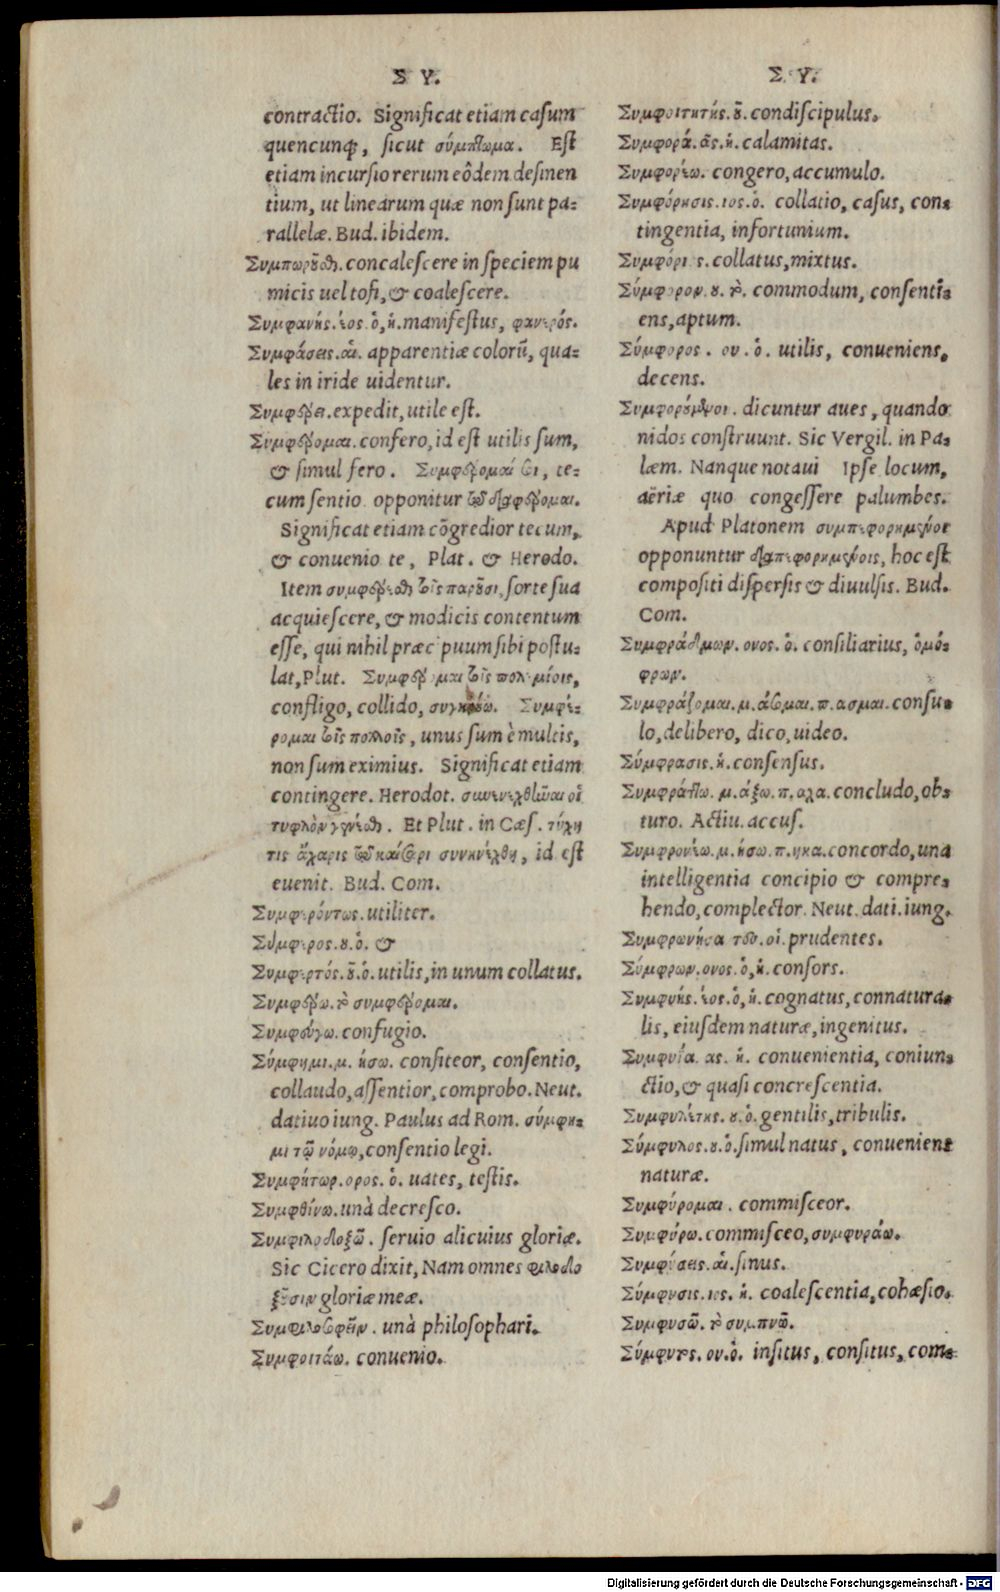 Σ Υ.
contractio. Significat etiam casum
quencunq;, sicut σύμπτωμα. Est
etiam incursio rerum eôdem desinen
tium, ut linearum quæ non sunt pa-
rallelæ. Bud. ibidem.
Συμπωροῦσθαι. concalescere in speciem pu
micis uel tofi, & coalescere.
Συμφανής. έος. ὁ, ἡ. manifestus, φανερός.
Συμφάσεις. αἱ. apparentiæ colorũ, qua-
les in iride uidentur.
Συμφέρει. expedit, utile est.
Συμφέρομαι. confero, id est utilis sum,
& simul fero. Συμφέρομαί σοι, te-
cum sentio opponitur τῷ διαφέρομαι.
Significat etiam cõgredior tecum,
& conuenio te, Plat. & Herodo.
Item συμφέρεσθαι τοῖς παροῦσι, sorte sua
acquiescere, & modicis contentum
esse, qui nihil præcipuum sibi postu-
lat, Plut. Συμφέρομαι τοῖς πολεμίοις,
confligo, collido, συγκρούω. Συμφέ-
ρομαι τοῖς πολλοῖς, unus sum è multis,
non sum eximius. Significat etiam
contingere. Herodot. συνενεχθῶαι οἱ
τυφλὸν γενέσθαι. Et Plut. in Cæs. τύχη
τις ἄχαρις τῷ καίσαρι συνηνέχθη, id est
euenit. Bud. Com.
Συμφερόντως. utiliter.
Σύμφερος. ου. ὁ. &
Συμφερτός. οῦ. ὁ. utilis, in unum collatus.
Συμφέρω. τὸ συμφέρομαι.
Συμφεύγω. confugio.
Σύμφημι. μ. ήσω. confiteor, consentio,
collaudo, assentior, comprobo. Neut.
datiuo iung. Paulus ad Rom. σύμφη-
μι τῷ νόμῳ, consentio legi.
Συμφήτωρ. ορος. ὁ. uates, testis.
Συμφθίνω. unà decresco.
Συμφιλοδοξῶ. seruio alicuius gloriæ.
Sic Cicero dixit, Nam omnes φιλοδο
ξοῦσιν gloriæ meæ.
Συμφιλοσοφεῖν. unà philosophari.
Συμφοιτάω. conuenio.
Σ. Υ.
Συμφοιτητής. οῦ. condiscipulus.
Συμφορά. ᾶς. ἡ. calamitas.
Συμφορέω. congero, accumulo.
Συμφόρησις. ιος. ὁ. collatio, casus, con-
tingentia, infortunium.
Συμφόρι ς. collatus, mixtus.
Σύμφορον. ου. τὸ. commodum, consenti-
ens, aptum.
Σύμφορος. ου. ὁ. utilis, conueniens,
decens.
Συμφορούμενοι. dicuntur aues, quando
nidos construunt. Sic Vergil. in Pa-
læm. Nanque notaui Ipse locum,
aëriæ quo congessere palumbes.
Apud Platonem συμπεφορημένοι
opponuntur διαπεφορημένοις, hoc est
compositi dispersis & diuulsis. Bud.
Com.
Συμφράδμων. ονος. ὁ. consiliarius, ὁμό-
φρων.
Συμφράζομαι. μ. άσομαι. π. ασμαι. consu-
lo, delibero, dico, uideo.
Σύμφρασις. ἡ. consensus.
Συμφράττω. μ. άξω. π. αχα. concludo, ob-
turo. Actiu. accus.
Συμφρονέω. μ. ήσω. π. ηκα. concordo, una
intelligentia concipio & compre-
hendo, complector. Neut. dati. iung.
οἱ. prudentes.
Σύμφρων. ονος. ὁ, ἡ. consors.
Συμφυής. έος. ὁ, ἡ. cognatus, connatura-
lis, eiusdem naturæ, ingenitus.
Συμφυΐα. ας. ἡ. conuenientia, coniun-
ctio, & quasi concrescentia.
Συμφυλέτης. ου. ὁ. gentilis, tribulis.
Σύμφυλος. ου. ὁ. simul natus, conueniens
naturæ.
Συμφύρομαι. commisceor.
Συμφύρω. commisceo, συμφυράω.
Συμφύσεις. αἱ. sinus.
Σύμφυσις. ιος. ἡ. coalescentia, cohæsio.
Συμφυσῶ. τὸ συμπνῶ.
Σύμφυτος. ου. ὁ. insitus, consitus, com-
Digitalisierung gefördert durch die Deutsche Forschungsgemeinschaft - DFG